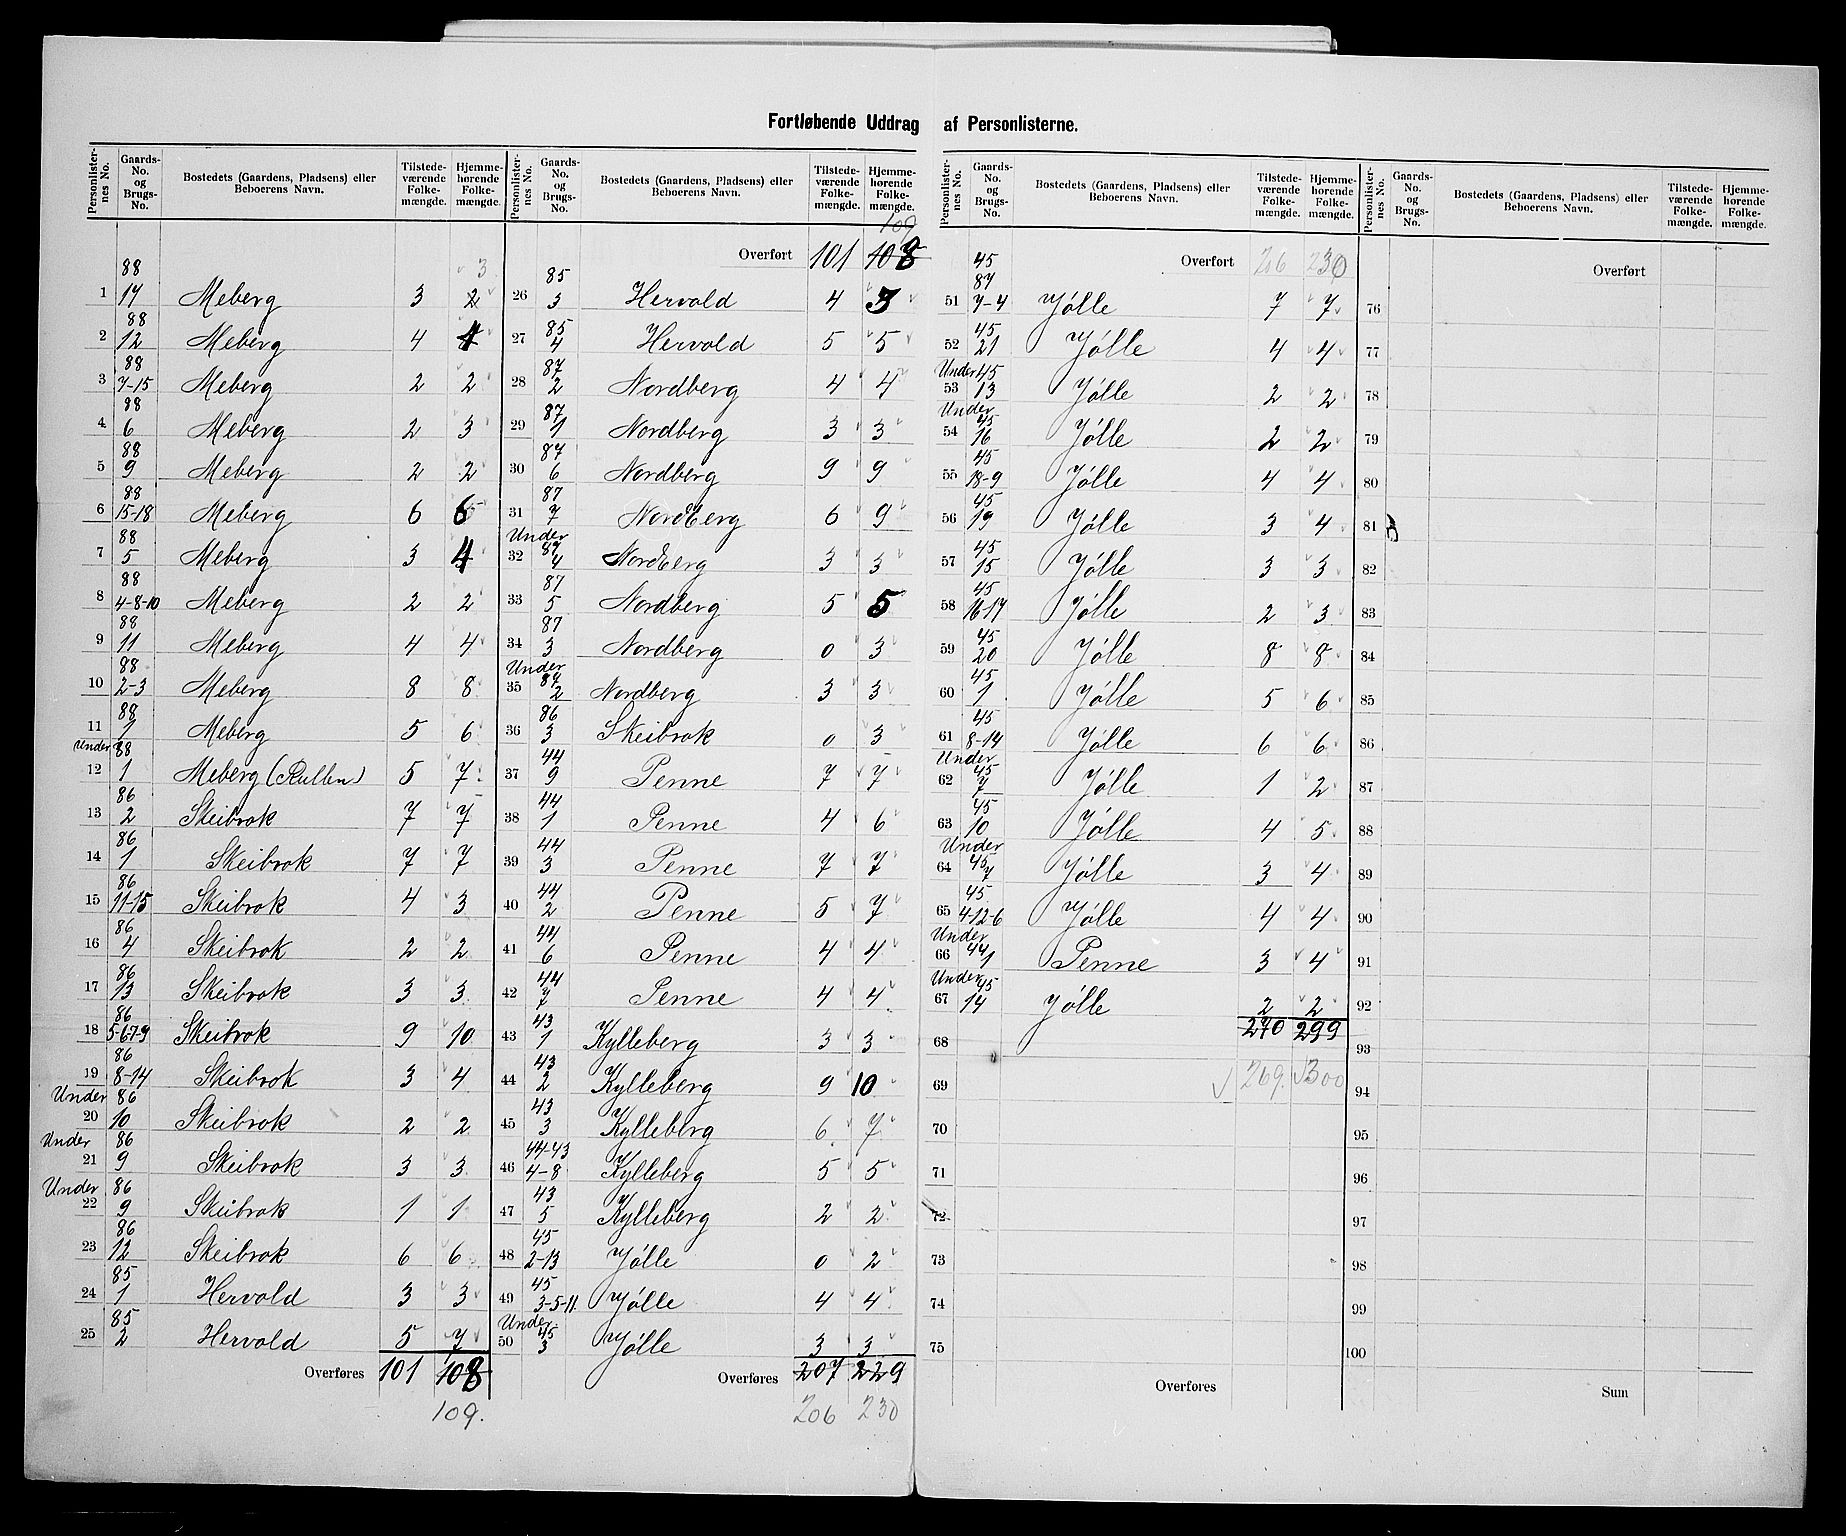 Fortløbende Uddrag af Personlisterne.
Personlister-nes No. | Gaards-No. og Brugs-No. | Bostedets (Gaardens, Pladsens) eller Beboerens Navn. | Tilstede-værende Folke-mængde. | Hjemme-hørende Folke-mængde.
3
1 | 88 17 | Meberg | 3 | 2
2 | 88 12 | Meberg | 4 | 4
3 | 88 7-15 | Meberg | 2 | 2
4 | 88 6 | Meberg | 2 | 3
5 | 88 9 | Meberg | 2 | 2
6 | 88 15-18 | Meberg | 6 | 6
7 | 88 5 | Meberg | 3 | 4
8 | 88 4-8-10 | Meberg | 2 | 2
9 | 88 11 | Meberg | 4 | 4
10 | 88 2-3 | Meberg | 8 | 8
11 | 88 1 | Meberg | 5 | 6
12 | Under 88 1 | Meberg (Rullen) | 5 | 7
13 | 86 2 | Skeibrok | 7 | 7
14 | 86 1 | Skeibrok | 7 | 7
15 | 86 11-15 | Skeibrok | 4 | 3
16 | 86 4 | Skeibrok | 2 | 2
17 | 86 13 | Skeibrok | 3 | 3
18 | 86 5-6-7-9 | Skeibrok | 9 | 10
19 | 86 8-14 | Skeibrok | 3 | 4
20 | Under 86 10 | Skeibrok | 2 | 2
21 | Under 86 9 | Skeibrok | 3 | 3
22 | Under 86 9 | Skeibrok | 1 | 1
23 | 86 12 | Skeibrok | 6 | 6
24 | 85 1 | Hervold | 3 | 3
25 | 85 2 | Hervold | 5 | 7
Overføres 101 108
109.
Personlister-nes No. | Gaards-No. og Brugs-No. | Bostedets (Gaardens, Pladsens) eller Beboerens Navn. | Tilstede-værende Folke-mængde. | Hjemme-hørende Folke-mængde.
109
Overført 101 108
26 | 85 3 | Hervold | 4 | 3
27 | 85 4 | Hervold | 5 | 5
28 | 87 2 | Nordberg | 4 | 4
29 | 87 1 | Nordberg | 3 | 3
30 | 87 6 | Nordberg | 9 | 9
31 | 87 7 | Nordberg | 6 | 9
32 | Under 87 4 | Nordberg | 3 | 3
33 | 87 5 | Nordberg | 5 | 5
34 | 87 3 | Nordberg | 0 | 3
35 | Under 87 2 | Nordberg | 3 | 3
36 | 86 3 | Skeibrok | 0 | 3
37 | 44 9 | Penne | 7 | 7
38 | 44 1 | Penne | 4 | 6
39 | 44 3 | Penne | 7 | 7
40 | 44 2 | Penne | 5 | 7
41 | 44 6 | Penne | 4 | 4
42 | 44 7 | Penne | 4 | 4
43 | 43 1 | Kylleberg | 3 | 3
44 | 43 2 | Kylleberg | 9 | 10
45 | 43 3 | Kylleberg | 6 | 7
46 | 44-43 4-8 | Kylleberg | 5 | 5
47 | 43 5 | Kylleberg | 2 | 2
48 | 45 2-13 | Jølle | 0 | 2
49 | 45 3-5-11 | Jølle | 4 | 4
50 | Under 45 3 | Jølle | 3 | 3
Overføres 207 229
206 230
Personlister-nes No. | Gaards-No. og Brugs-No. | Bostedets (Gaardens, Pladsens) eller Beboerens Navn. | Tilstede-værende Folke-mængde. | Hjemme-hørende Folke-mængde.
Overført 206 230
51 | 45 87 7-4 | Jølle | 7 | 7
52 | 45 21 | Jølle | 4 | 4
53 | Under 45 13 | Jølle | 2 | 2
54 | Under 45 16 | Jølle | 2 | 2
55 | 45 18-9 | Jølle | 4 | 4
56 | 45 19 | Jølle | 3 | 4
57 | 45 15 | Jølle | 3 | 3
58 | 45 16-17 | Jølle | 2 | 3
59 | 45 20 | Jølle | 8 | 8
60 | 45 1 | Jølle | 5 | 6
61 | 45 8-14 | Jølle | 6 | 6
62 | Under 45 7 | Jølle | 1 | 2
63 | 45 10 | Jølle | 4 | 5
64 | Under 45 7 | Jølle | 3 | 4
65 | 45 4-12-6 | Jølle | 4 | 4
66 | Under 44 1 | Penne | 3 | 4
67 | Under 45 14 | Jølle | 2 | 2
270 299
68
269. 300
69
70
71
72
73
74
75
Overføres
Personlister-nes No. | Gaards-No. og Brugs-No. | Bostedets (Gaardens, Pladsens) eller Beboerens Navn. | Tilstede-værende Folke-mængde. | Hjemme-hørende Folke-mængde.
Overført
76
77
78
79
80
81
82
83
84
85
86
87
88
89
90
91
92
93
94
95
96
97
98
99
100
Sum